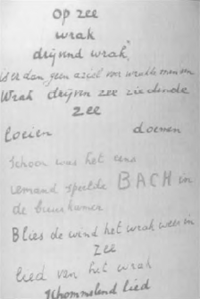 op zee
wrak
drijvend wrak
is er dan geen asiel voor wrakke mensen
Wrak drijven zee ziedende
zee
loeien doemen
schoon was het eens
iemand speelde BACH in
de buurkamer
Blies de wind het wrak weer in
zee
lied van het wrak
schommelend lied